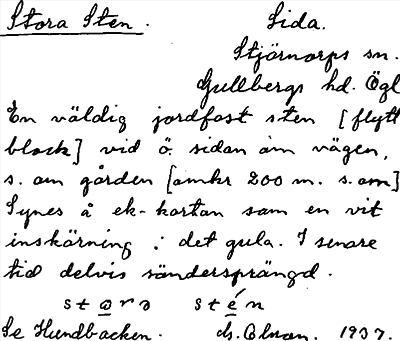 Stora Sten. Sida.
Stjörnorps sn.
Gullbergs hd. Ögl
En väldig jordfast sten [flytt
block] vid ö. sidan om vägen,
s. om gården [omkr 200 m. s.om]
Synes å ek-kartan som en vit
inskärning i det gula. I senare
tid delvis söndersprängd.
stora stén
Se Hundbacken. 1937.